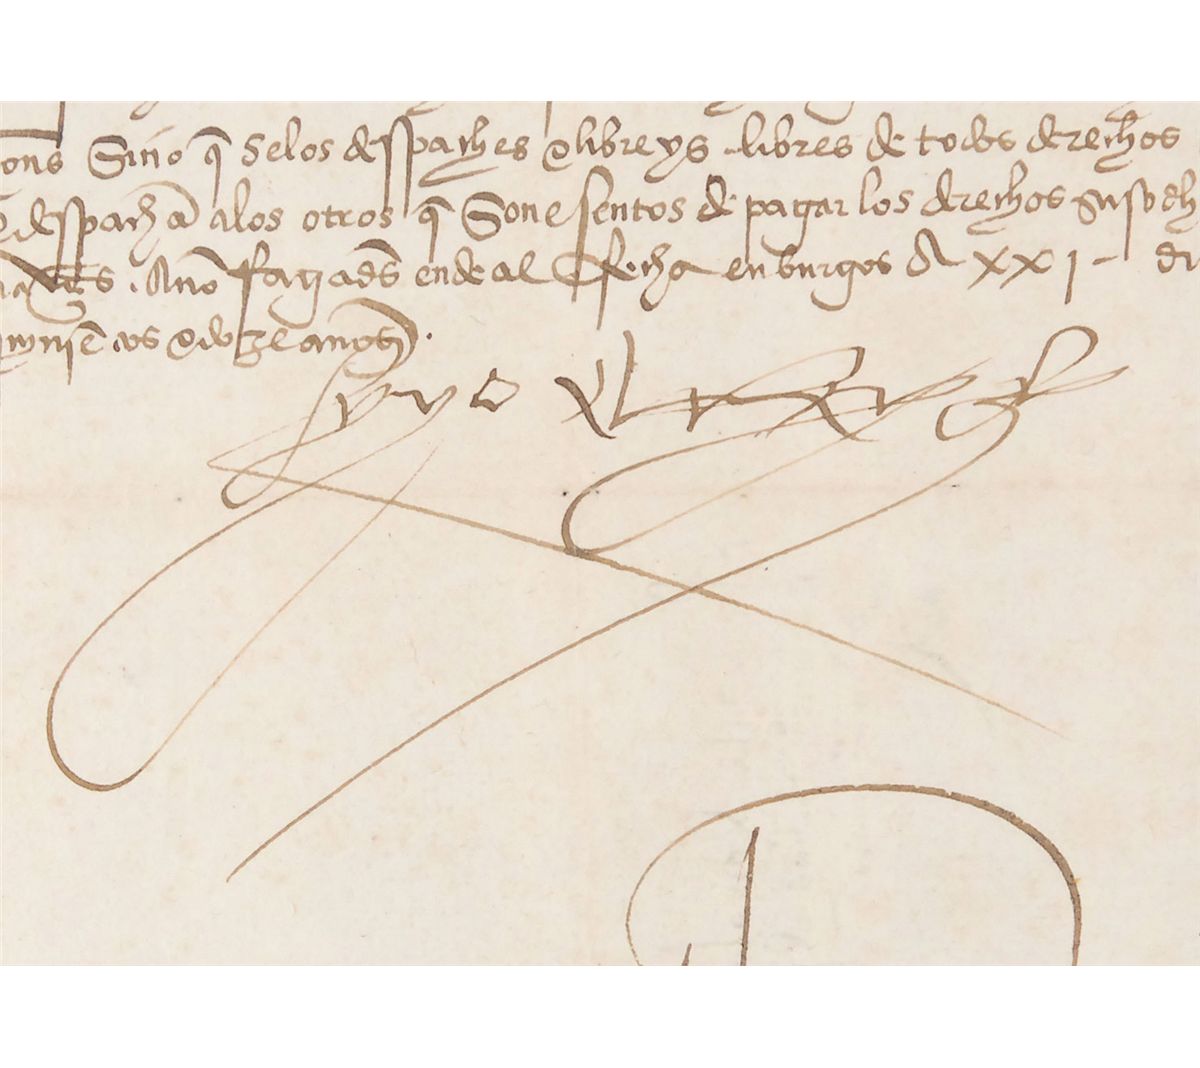 Sino q̃ selos despaches & libreys libres de todos derechos
despachã alos otros q̃ son esentos de pagar los derechos suso dh
fagades ende al fecha en burgos A XXI di
& doze anos.
yo el rey